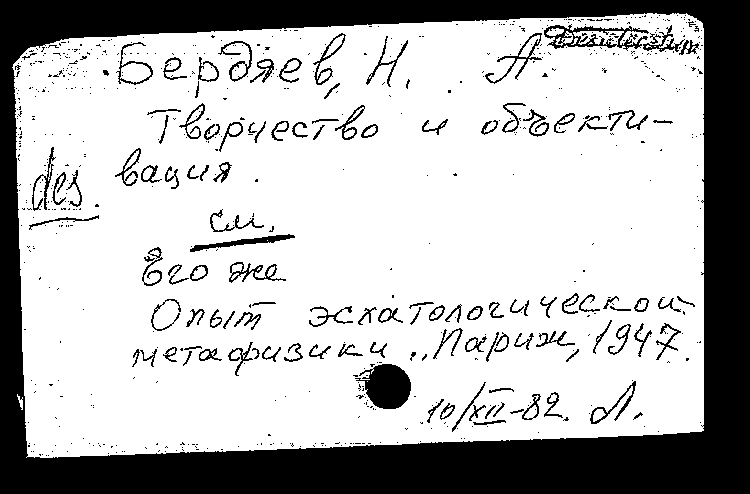 Бердяев, Н. А.
Творчество и объекти-
вация.
des.
см.
Его же
Опыт эсхатологической
метафизики. Париж, 1947.
10/XII-82. Л.